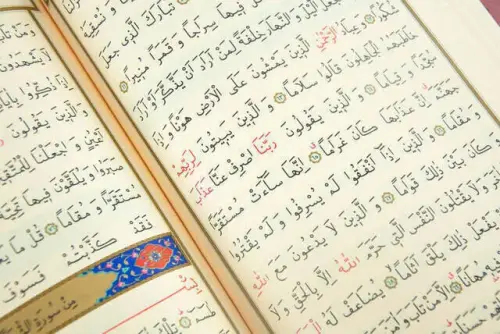 تَبَارَكَ الَّذِي جَعَلَ
فِيهَا سِرَاجًا وَ قَمَرًا مُنِيرًا
جَعَلَ الَّيْلَ وَ النَّهَارَ خِلْفَةً لِمَنْ اَرَادَ اَنْ يَذَّكَّرَ اَوْ اَرَادَ
شُكُورًا وَ عِبَادُ الرَّحْمٰنِ الَّذِينَ يَمْشُونَ عَلَى الْاَرْضِ هَوْنًا وَ اِذَا
خَاطَبَهُمُ الْجَاهِلُونَ قَالُوا سَلَامًا وَ الَّذِينَ يَبِيتُونَ لِرَبِّهِمْ
سُجَّدًا وَ قِيَامًا وَ الَّذِينَ يَقُولُونَ رَبَّنَا اصْرِفْ عَنَّا عَذَابَ
جَهَنَّمَ اِنَّ عَذَابَهَا كَانَ غَرَامًا اِنَّهَا سَاءَتْ مُسْتَقَرًّا
وَ مُقَامًا وَ الَّذِينَ اِذَا اَنْفَقُوا لَمْ يُسْرِفُوا وَ لَمْ يَقْتُرُوا
كَانَ بَيْنَ ذٰلِكَ قَوَامًا وَ الَّذِينَ لَا يَدْعُونَ مَعَ اللّٰهِ
وَ لَا يَقْتُلُونَ النَّفْسَ الَّتِي حَرَّمَ اللّٰهُ اِلَّا بِالْحَقِّ وَ لَا
يَفْعَلْ ذٰلِكَ يَلْقَ اَثَامًا يُضَاعَفْ لَهُ
مُهَانًا اِلَّا مَنْ تَابَ
وَ مَنْ تَابَ
يَشْهَدُونَ
اِذَا ذُكِّرُوا
وَ الَّذِينَ يَقُولُونَ
وَ اجْعَلْنَا لِلْمُتَّقِينَ
صَبَرُوا وَ يُلَقَّوْنَ فِيهَا
مُسْتَقَرًّا وَ مُقَامًا قُلْ مَا
فَقَدْ كَذَّبْتُمْ فَسَوْفَ